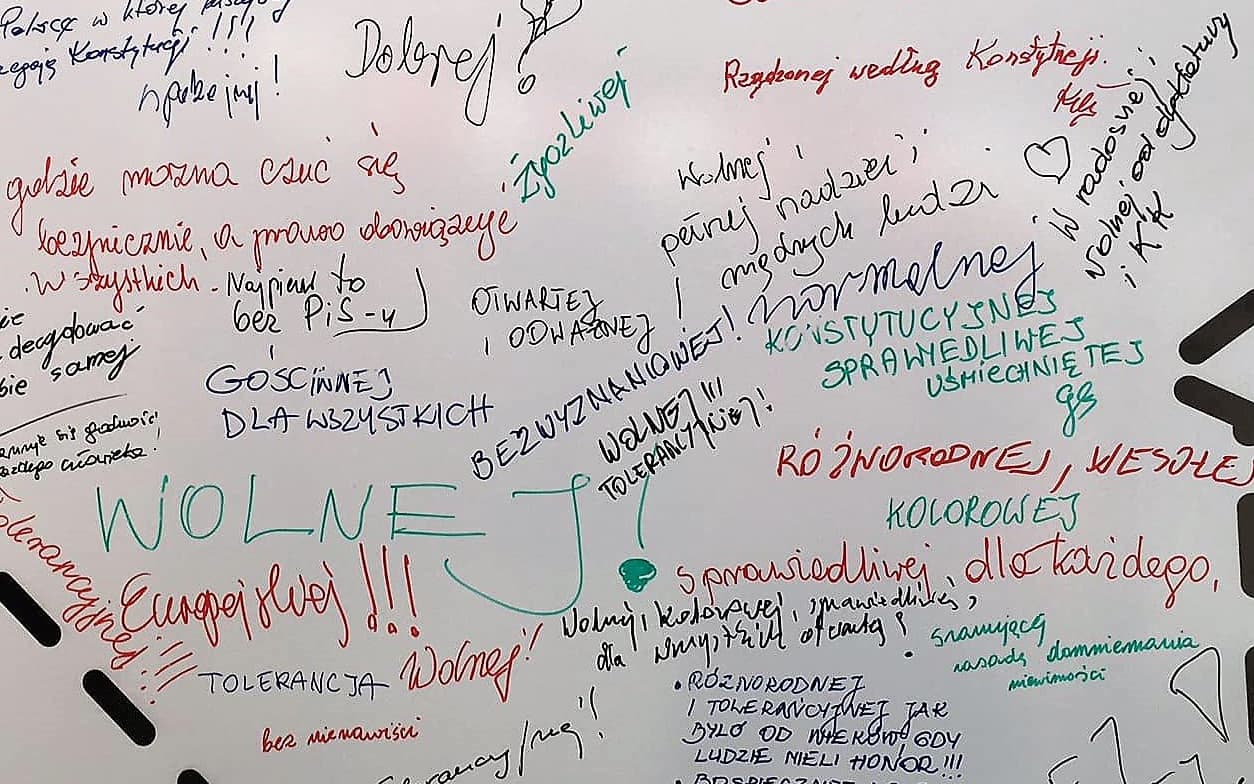 Polsce w której
Konstytucji!!!
spokojnej!
Dobrej!
Życzliwej
Rządzonej według Konstytucji.
W radosnej,
wolnej od dyktatury
i KK
gdzie można czuć się
bezpiecznie, a prawo obowiązuje
wszystkich.
Najpierw to
bez PiS-u
Wolnej,
pełnej nadziei i
mądrych ludzi
OTWARTEJ
I ODWAŻNEJ!
normalnej
KONSTYTUCYJNEJ
SPRAWIEDLIWEJ
UŚMIECHNIĘTEJ
decydować
samej
GOŚCINNEJ
DLA WSZYSTKICH
BEZWYZNANIOWEJ!
WOLNEJ!!!
TOLERANCYJNEJ!
się godność
człowieka!
RÓŻNORODNEJ, WESOŁEJ
KOLOROWEJ
WOLNEJ!
Tolerancyjnej!!!
Europejskiej!!!
sprawiedliwej, dla każdego,
Wolnej, kolorowej, sprawiedliwej,
dla wszystkich otwartej!
szanującej
zasadę domniemania
niewinności
TOLERANCJA
Wolnej!
bez nienawiści
• RÓŻNORODNEJ
I TOLERANCYJNEJ JAK
BYŁO OD WIEKÓW GDY
LUDZIE MIELI HONOR!!!